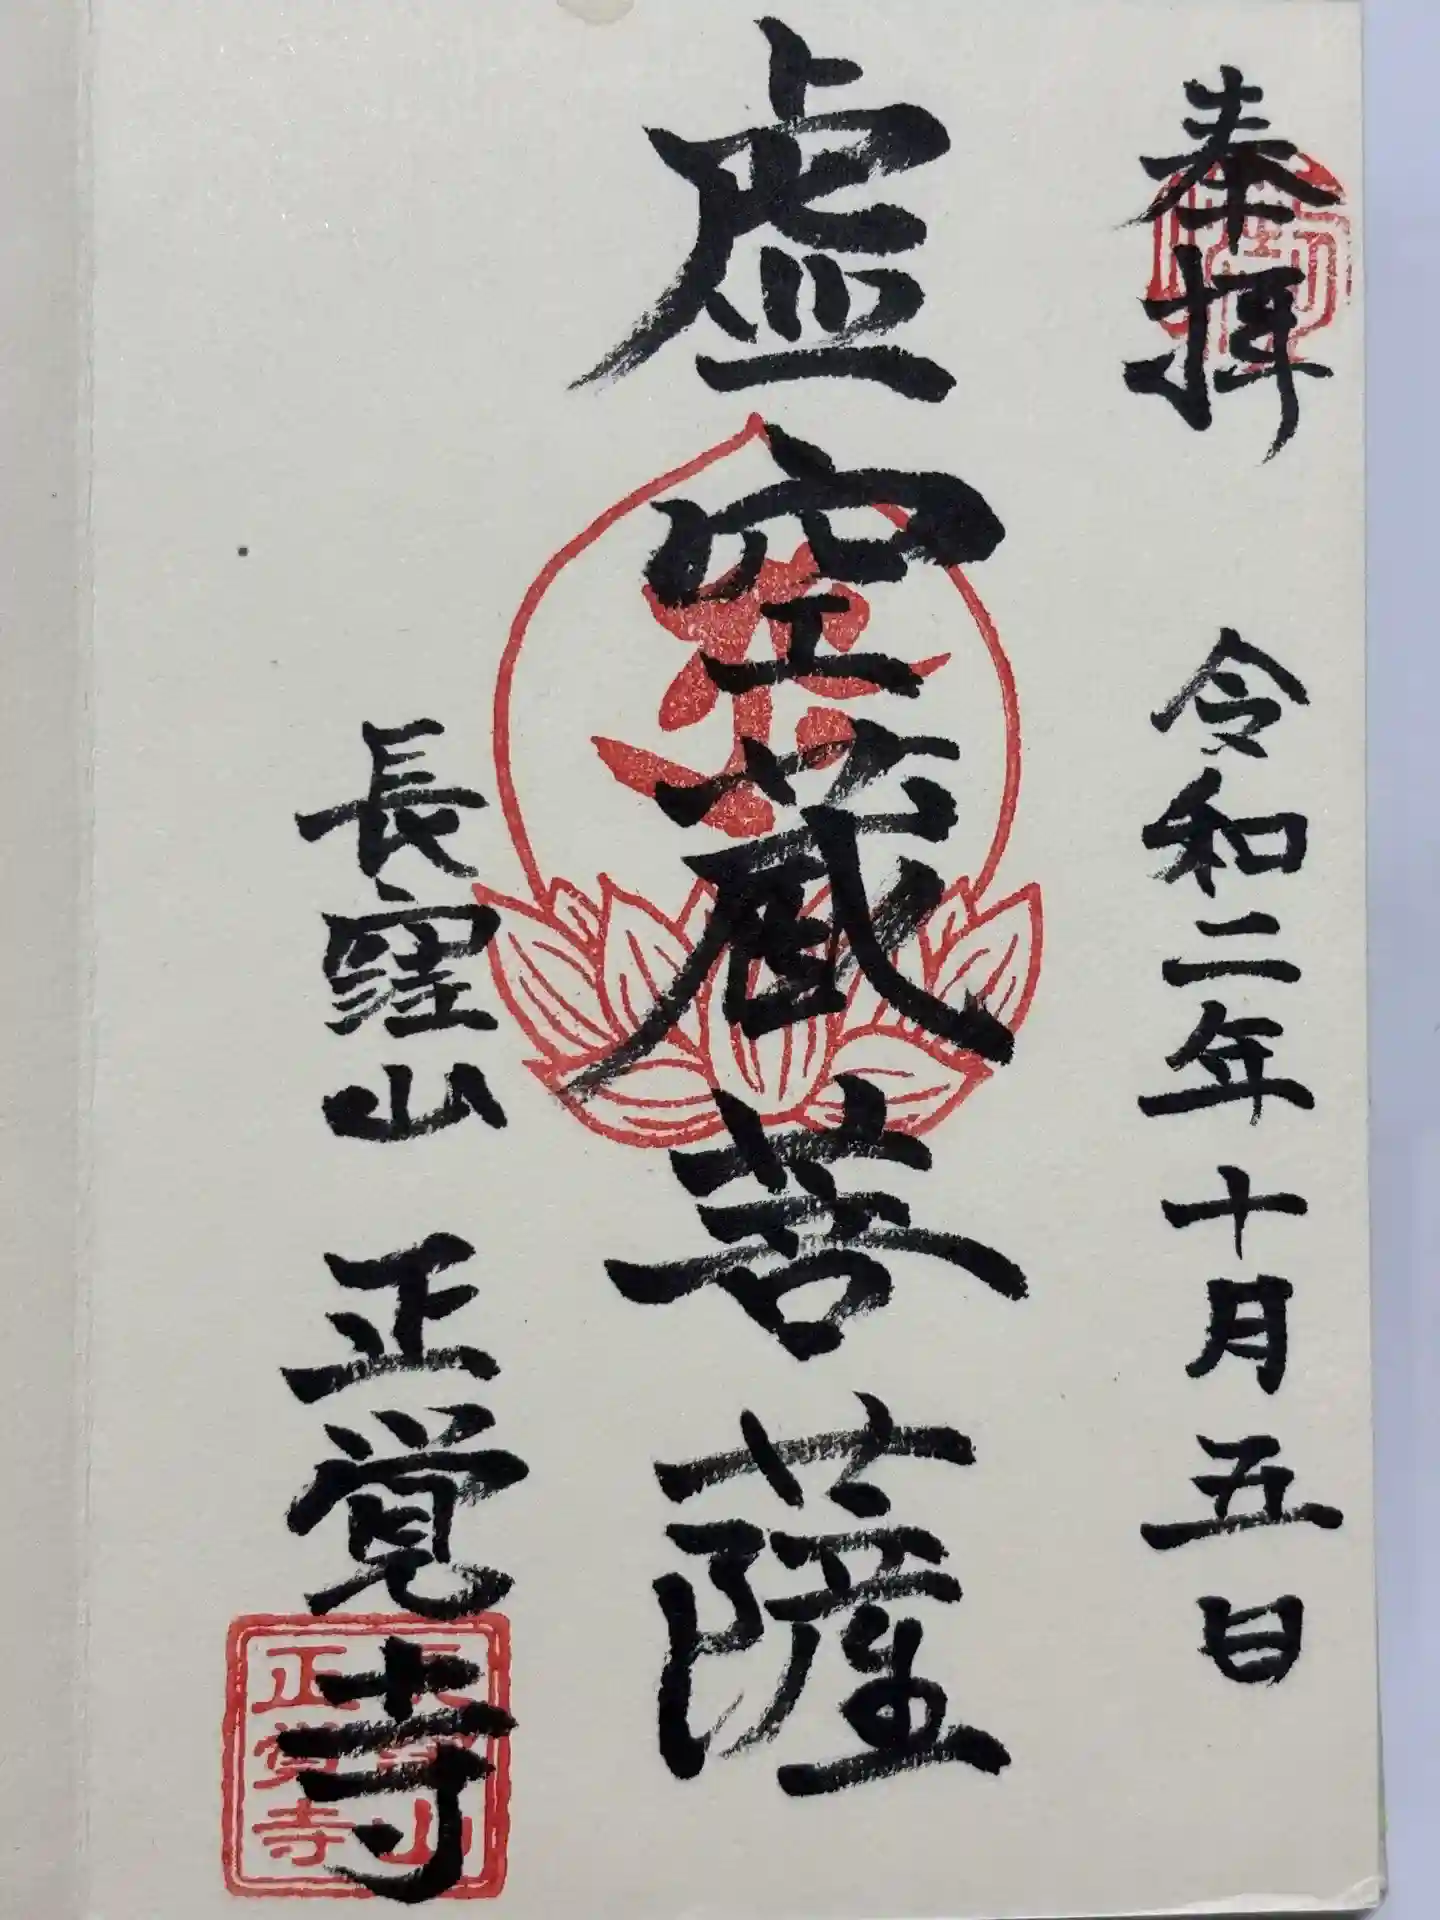 奉拝　令和二年十月五日
虚空蔵菩薩
長窪山　正覚寺
長窪山
正覚寺